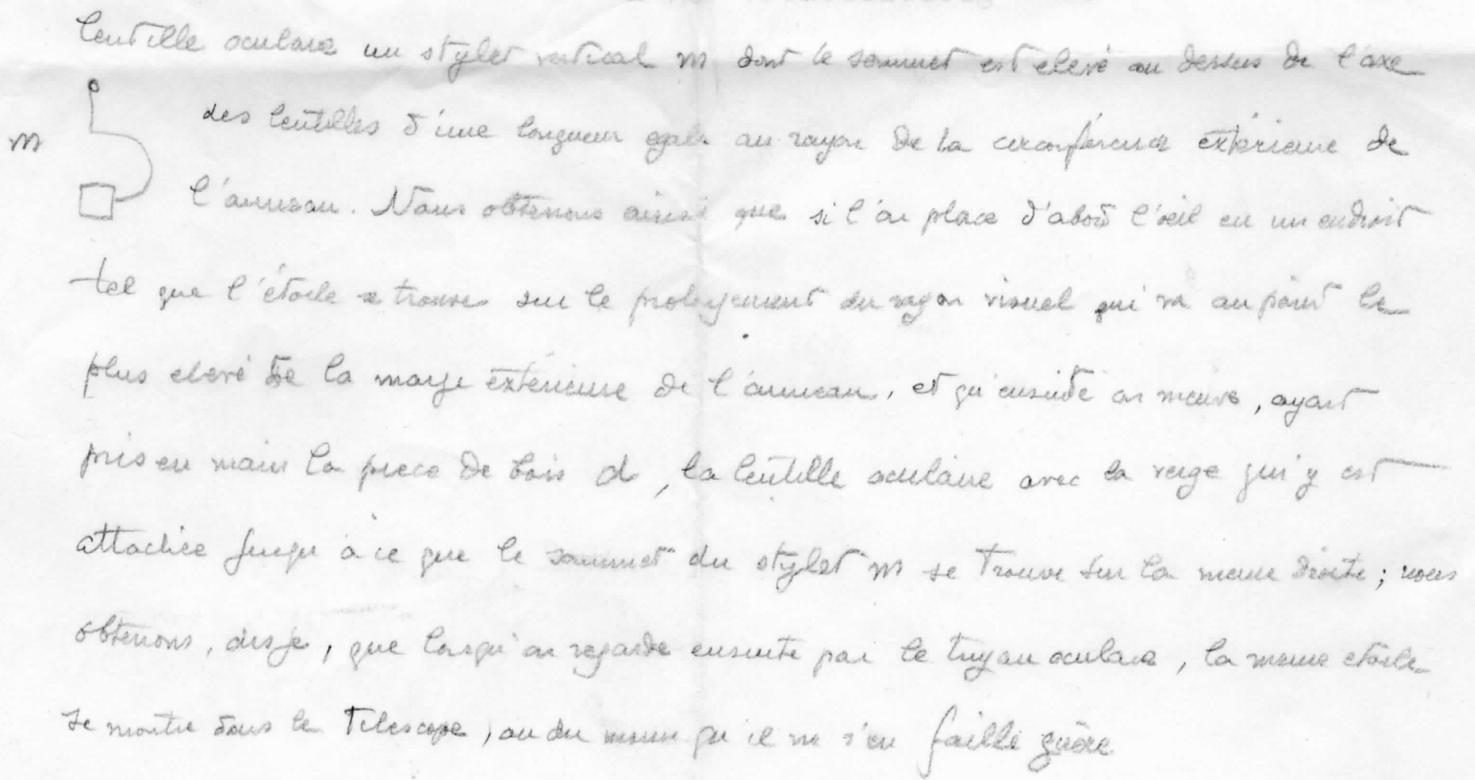 lentille oculaire un stylet vertical m dont le sommet est elevé au dessus de l'axe
m
des lentilles d'une longueur egale au rayon de la circonférence extérieure de
l'anneau. Nous obtenons ainsi que si l'on place d'abord l'oeil en un endroit
tel que l'étoile se trouve sur le prolongement du rayon visuel qui va au point le
plus elevé de la marge extérieure de l'anneau, et qu'ensuite on meuve, ayant
pris en main la piece de bois d, la lentille oculaire avec la verge qui y est
attachée jusqu'à ce que le sommet du stylet m se trouve sur la meme droite; nous
obtenons, dis je, que lorsqu'on regarde ensuite par le tuyau oculaire, la meme etoile
se montre dans le Telescope, ou du moins qu'il ne s'en faille guère